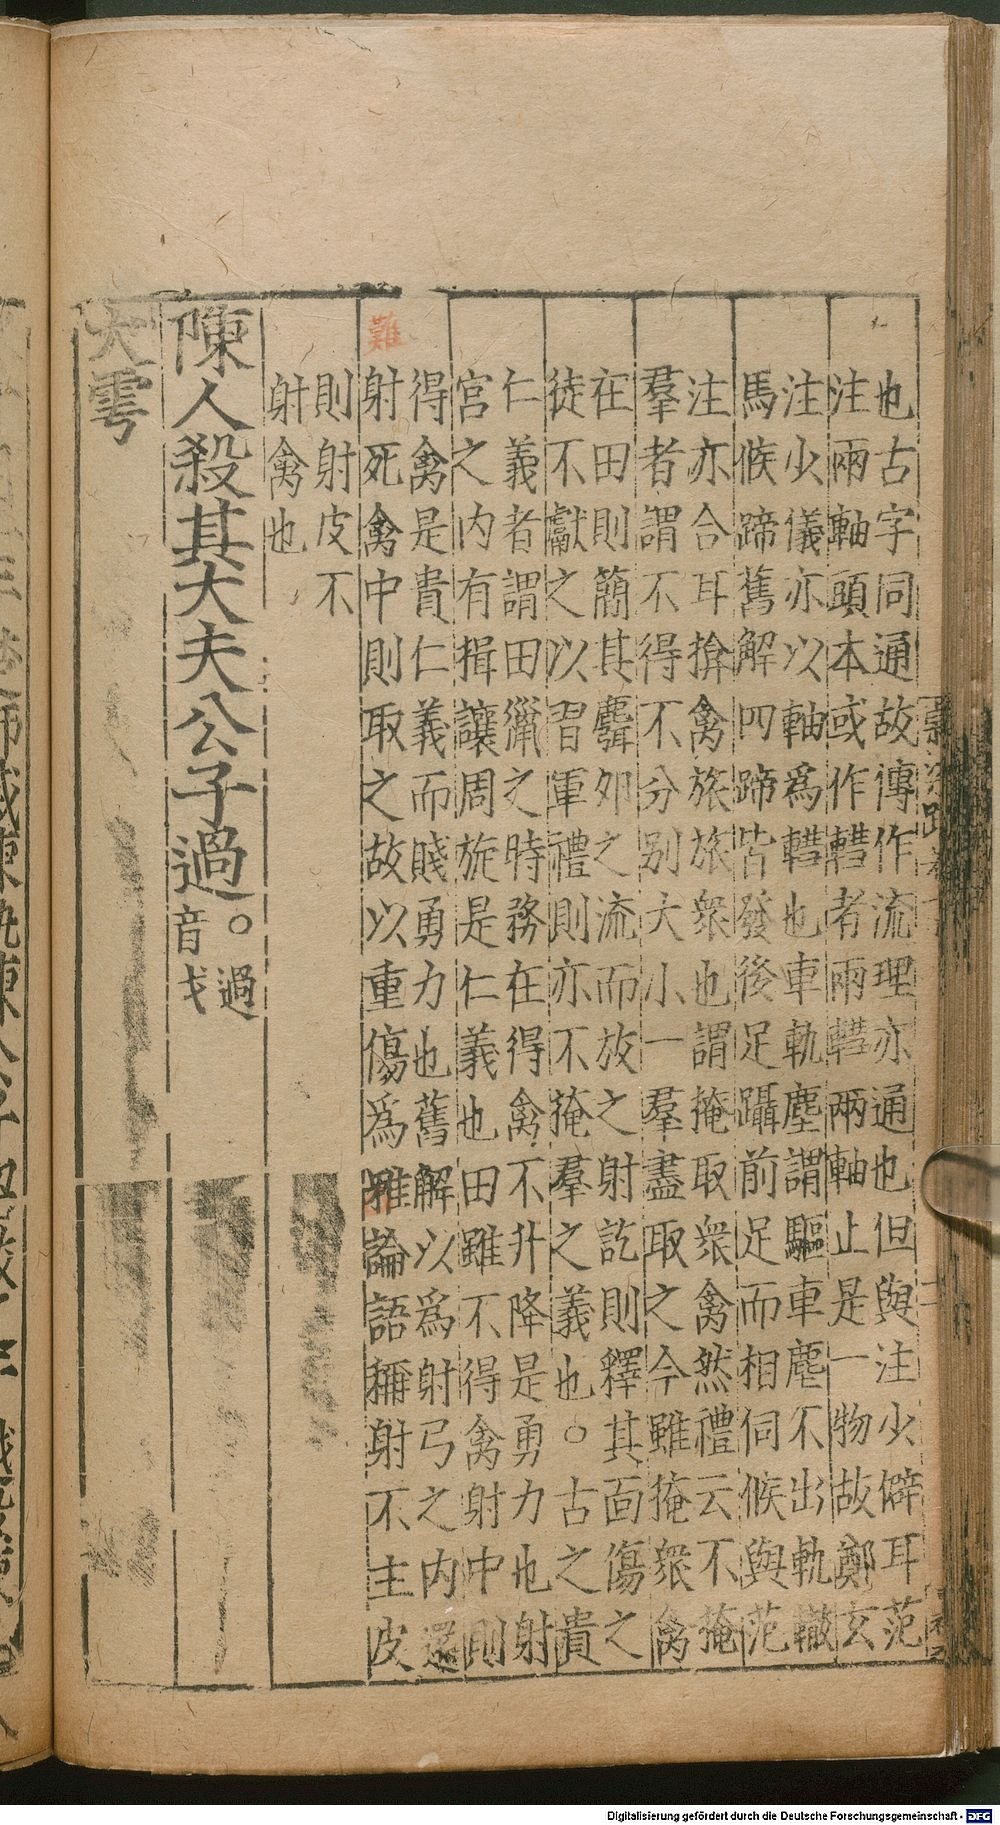 也古字同通故傳作流理亦通也但與注少僻耳范
注兩軸頭本或作轊者兩轊兩軸止是一物故鄭玄
注少儀亦以軸爲轊也車軌塵謂驅車塵不出軌轍
馬候蹄舊解四蹄皆發後足躡前足而相伺候與范
注亦合耳揜禽旅旅衆也謂掩取衆禽然禮云不掩
羣者謂不得不分別大小一羣盡取之今雖掩衆禽
在田則簡其麛夘之流而放之射訖則釋其面傷之
徒不獻之以習軍禮則亦不掩羣之義也○古之貴
仁義者謂田獵之時務在得禽不升降是勇力也射
宮之内有揖讓周旋是仁義也田雖不得禽射中則
得禽是貴仁義而賤勇力也舊解以爲射弓之内還
難
射死禽中則取之故以重傷爲難論語稱射不主皮
則射皮不
射禽也
陳人殺其大夫公子過○過
音戈
大雩
Digitalisierung gefördert durch die Deutsche Forschungsgemeinschaft - DFG